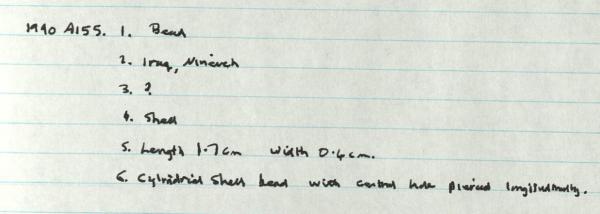 1990 A155. 1. Bead
2. Iraq, Nineveh
3. ?
4. Shell
5. Length 1.7cm width 0.6cm.
6. Cylindrical shell bead with central hole pierced longitudinally.